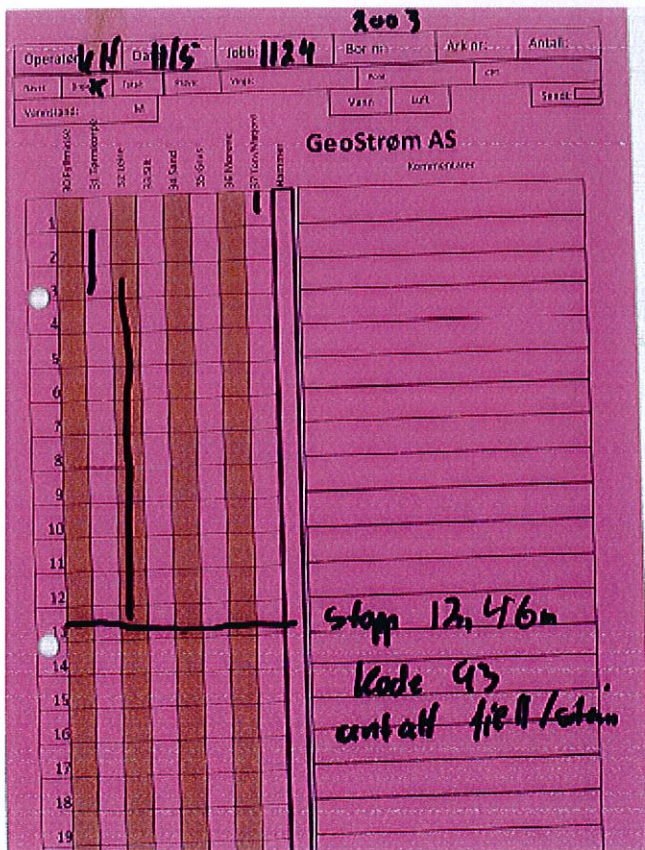 2003
Operatør: KH Dato: 11/5 Jobb: 1124 Bor nr: Ark nr: Antall:
Total: Vinge:
Vannstand: M Vann Luft Sendt:
GeoStrøm AS
Kommentarer
30 Fyllmasse
31 Tørrskorpe
32 Leire
33 Silt
34 Sand
35 Grus
36 Morene
37 Torv/Matjord
Hammer
1
2
3
4
5
6
7
8
9
10
11
12
13
14
15
16
17
18
19
stopp 12,46m
Kode 93
antatt fjell/stein